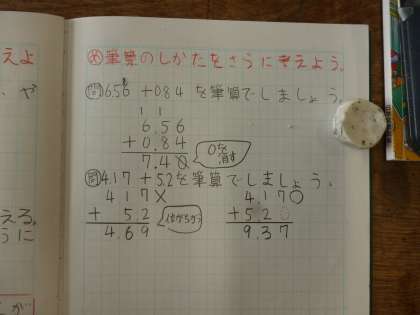 め 筆算のしかたをさらに考えよう。
問 6.56 + 0.84 を筆算でしましょう。
1 1
6.56
+ 0.84
7.40
0を消す
問 4.17 + 5.2 を筆算でしましょう。
4 1 7 ×
+ 5.2
4.69
位がちがう
4.17 ○
+ 5.20
9.37
えよ
える。
うに
が